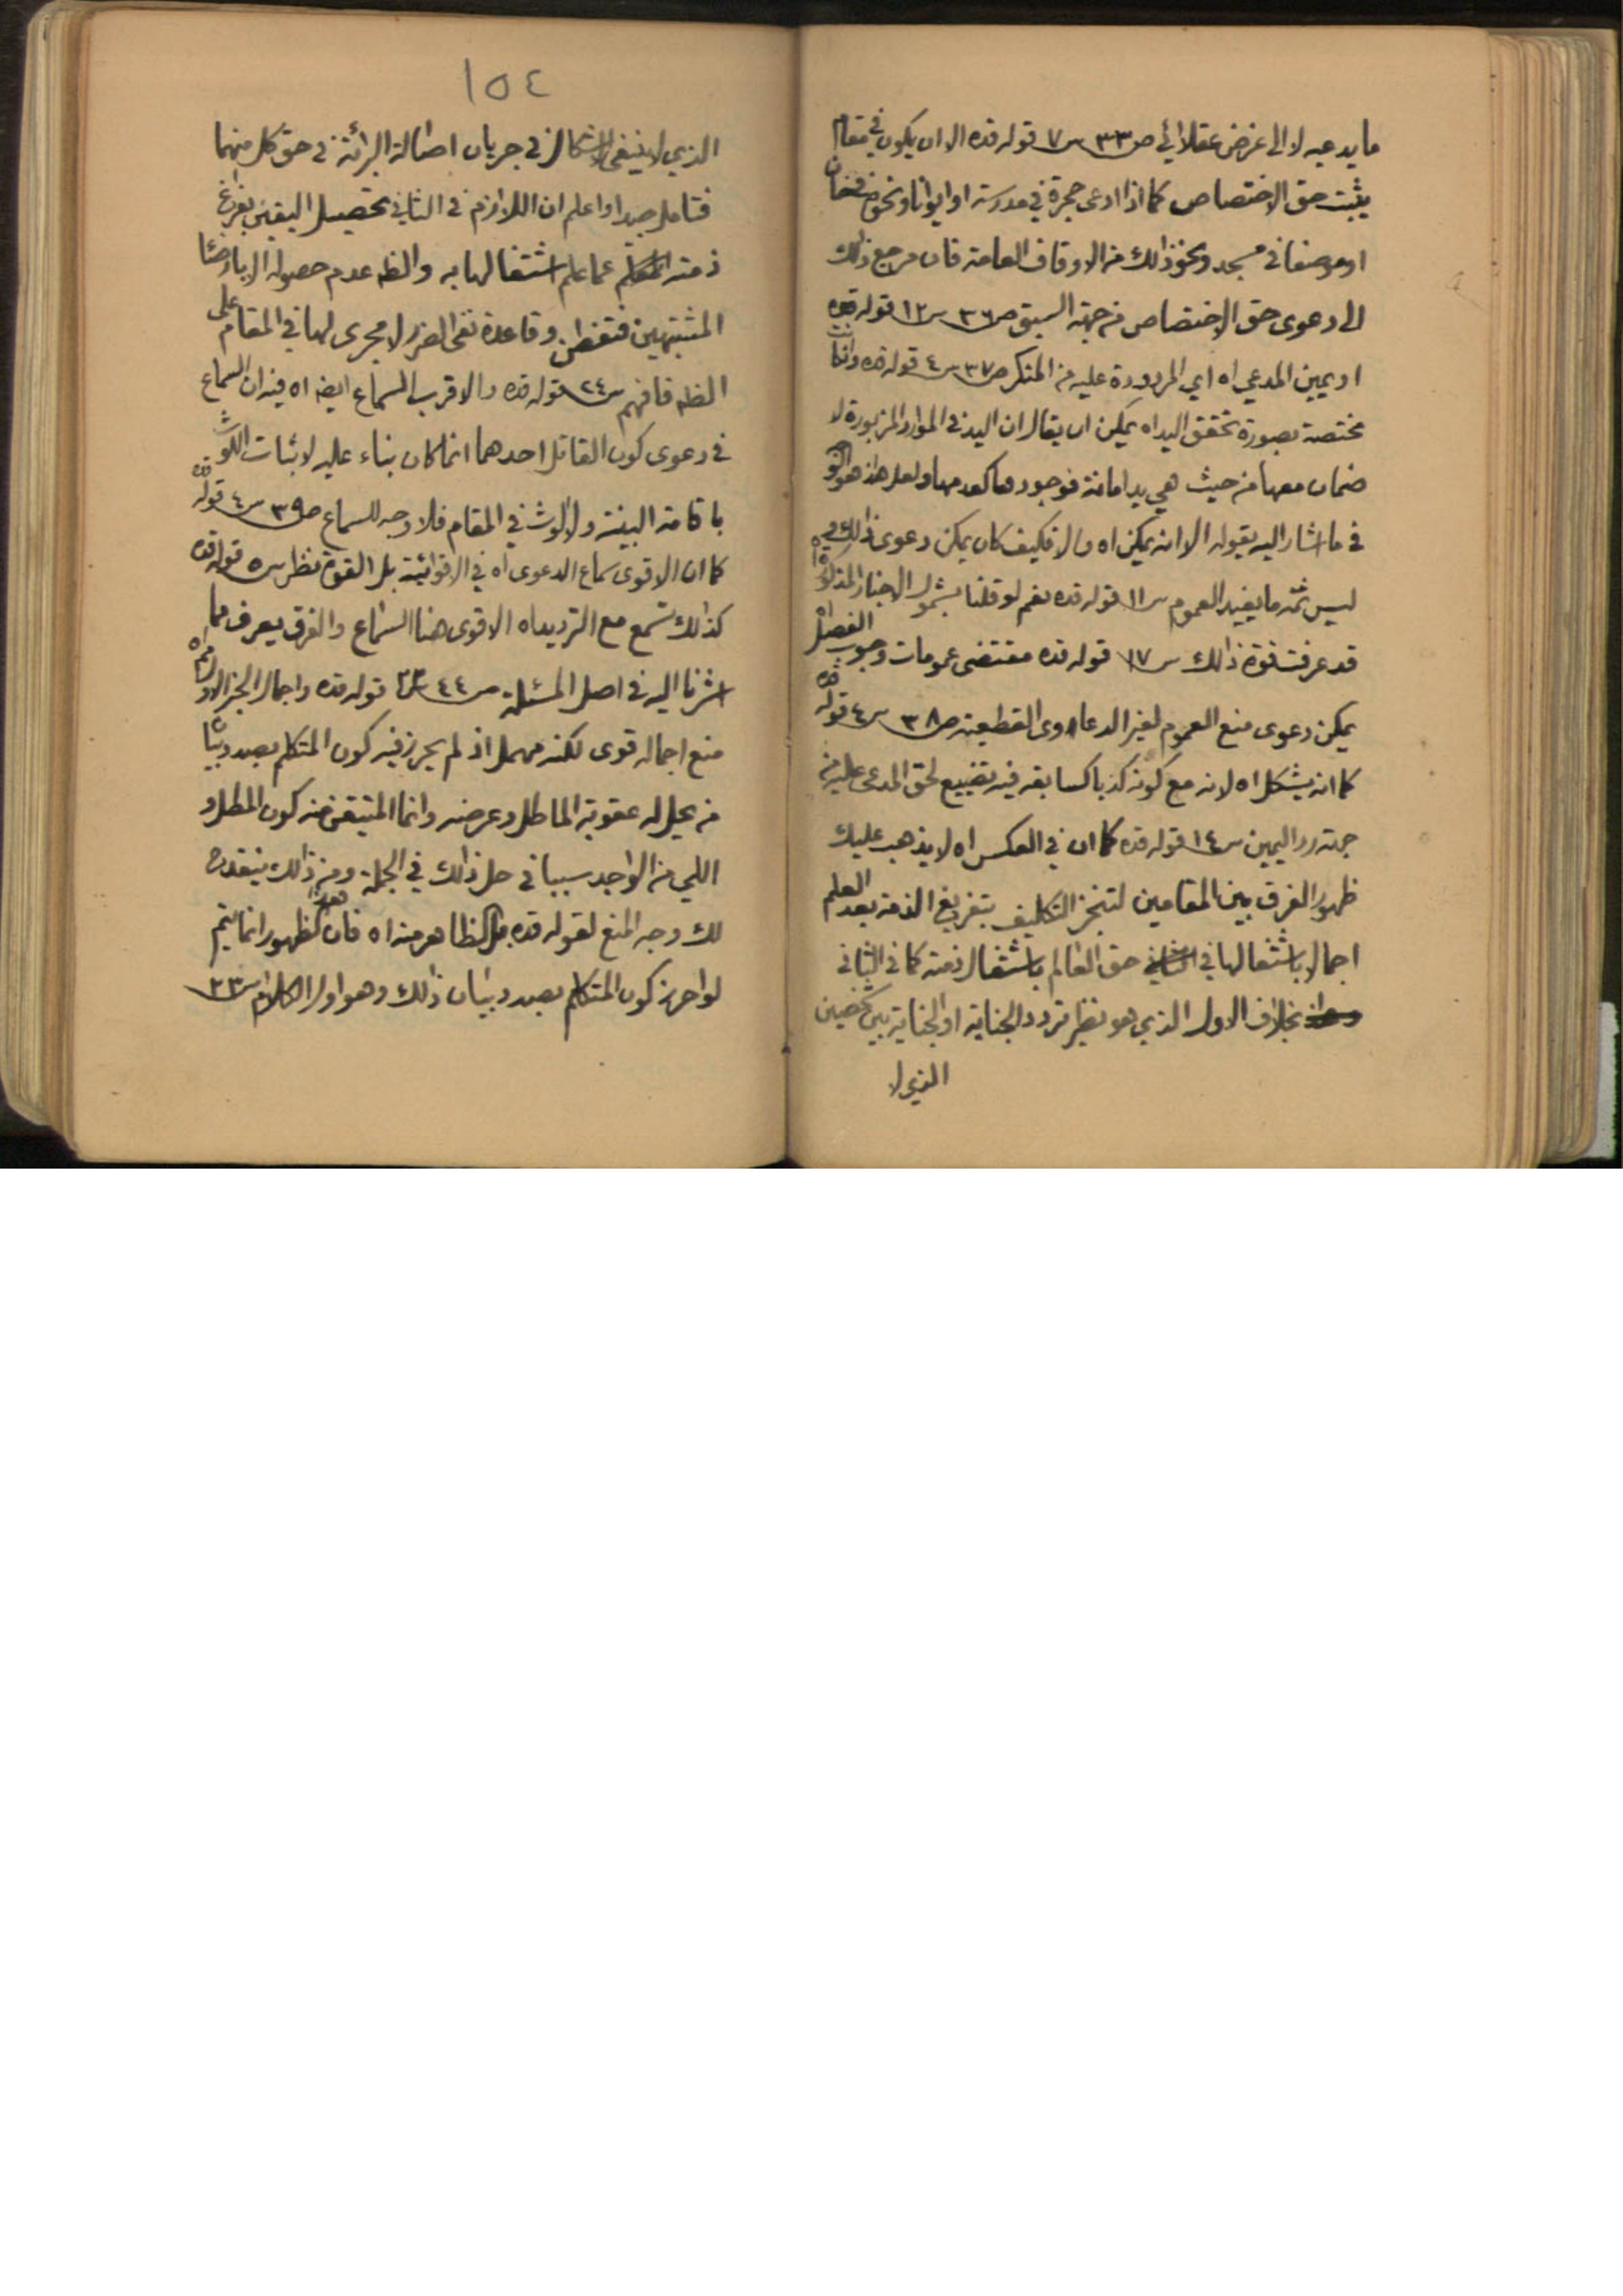 ما يدعيه لا الى غرض عقلائي ص٣٣ س٧ قوله قده الا ان يكون في مقام
يثبت حق الاختصاص كما اذا ادعى حجرة في مدرسة او ايوانا ونحوه في خان
او موضعا في مسجد ونحو ذالك من الاوقاف العامة فان مرجع ذالك
الى دعوى حق الاختصاص من جهة السبق ص٣٦ س١٢ قوله قده
او يمين المدعي اه اي المردودة عليه من المنكر ص٣٧ س٤ قوله قده وانكانت
مختصة بصورة تحقق اليد اه يمكن ان يقال ان اليد في الموارد المزبورة لا
ضمان معها من حيث هي يد امانة فوجودها كعدمها ولعل هذا هو
في ما اشار اليه بقوله الا انه يمكن اه والا فكيف كان يمكن دعوى ذالك و
ليس ثمة ما يفيد العموم س١١ قوله قده نعم لو قلنا بشمول الاخبار المذكورة اه
قد عرفت قوة ذالك س١٧ قوله قده مقتضى عمومات وجوب الفصل اه
يمكن دعوى منع العموم لغير الدعاوى القطعية ص٣٨ س٤ قوله قده
كما انه يشكل اه لانه مع كونه كذبا كسابقه فيه تضييع لحق المدعى عليه من
جهة رد اليمين س١٤ قوله قده كما ان في العكس اه لا يذهب عليك
ظهور الفرق بين المقامين لتنجز التكليف بتفريغ الذمة بعد العلم
اجمالا باشتغالها في حق العالم باشتغال ذمته كما في الثاني
بخلاف الاول الذي هو نظير تردد الجناية او الجناية بين شخصين
الذي لا
١٥٤
الذي لا ينبغي الاشكال في جريان اصالة البرائة في حق كل منهما
فتامل جيدا واعلم ان اللازم في الثاني تحصيل اليقين بفراغ
ذمته عما علم اشتغالها به والظ عدم حصوله الا بارضاء
المشتبهين فتفطن وقاعدة نفي الضرر لا مجرى لها في المقام على
الظ فافهم س٢٤ قوله قده والاقرب السماع ايضا اه فيه ان السماع
في دعوى كون القاتل احدهما انما كان بناء عليه لاثبات اللوث
باقامة البينة ولا لوث في المقام فلا وجه للسماع ص٣٩ س٤ قوله قده
كما ان الاقوى سماع الدعوى اه في الاقوائية بل القوة نظر س٥ قوله قده
كذالك تسمع مع الترديد اه الاقوى هنا السماع والفرق يعرف مما
اشرنا اليه في اصل المسئلة ص٤٤ س٢٣ قوله قده واجمال الخبر الاول اه
منع اجماله قوى لكنه مهمل اذ لم يحرز فيه كون المتكلم بصدد بيان
من يحل له عقوبة الماطل وعرضه وانما المتيقن منه كون المطل و
اللي من الواجد سببا في حل ذالك في الجملة ومن ذالك ينقدح
لك وجه المنع لقوله قده بل الظاهر منه اه فان هذا الظهور انما يتم
لو احرز كون المتكلم بصدد بيان ذالك وهو اول الكلام س٢٣